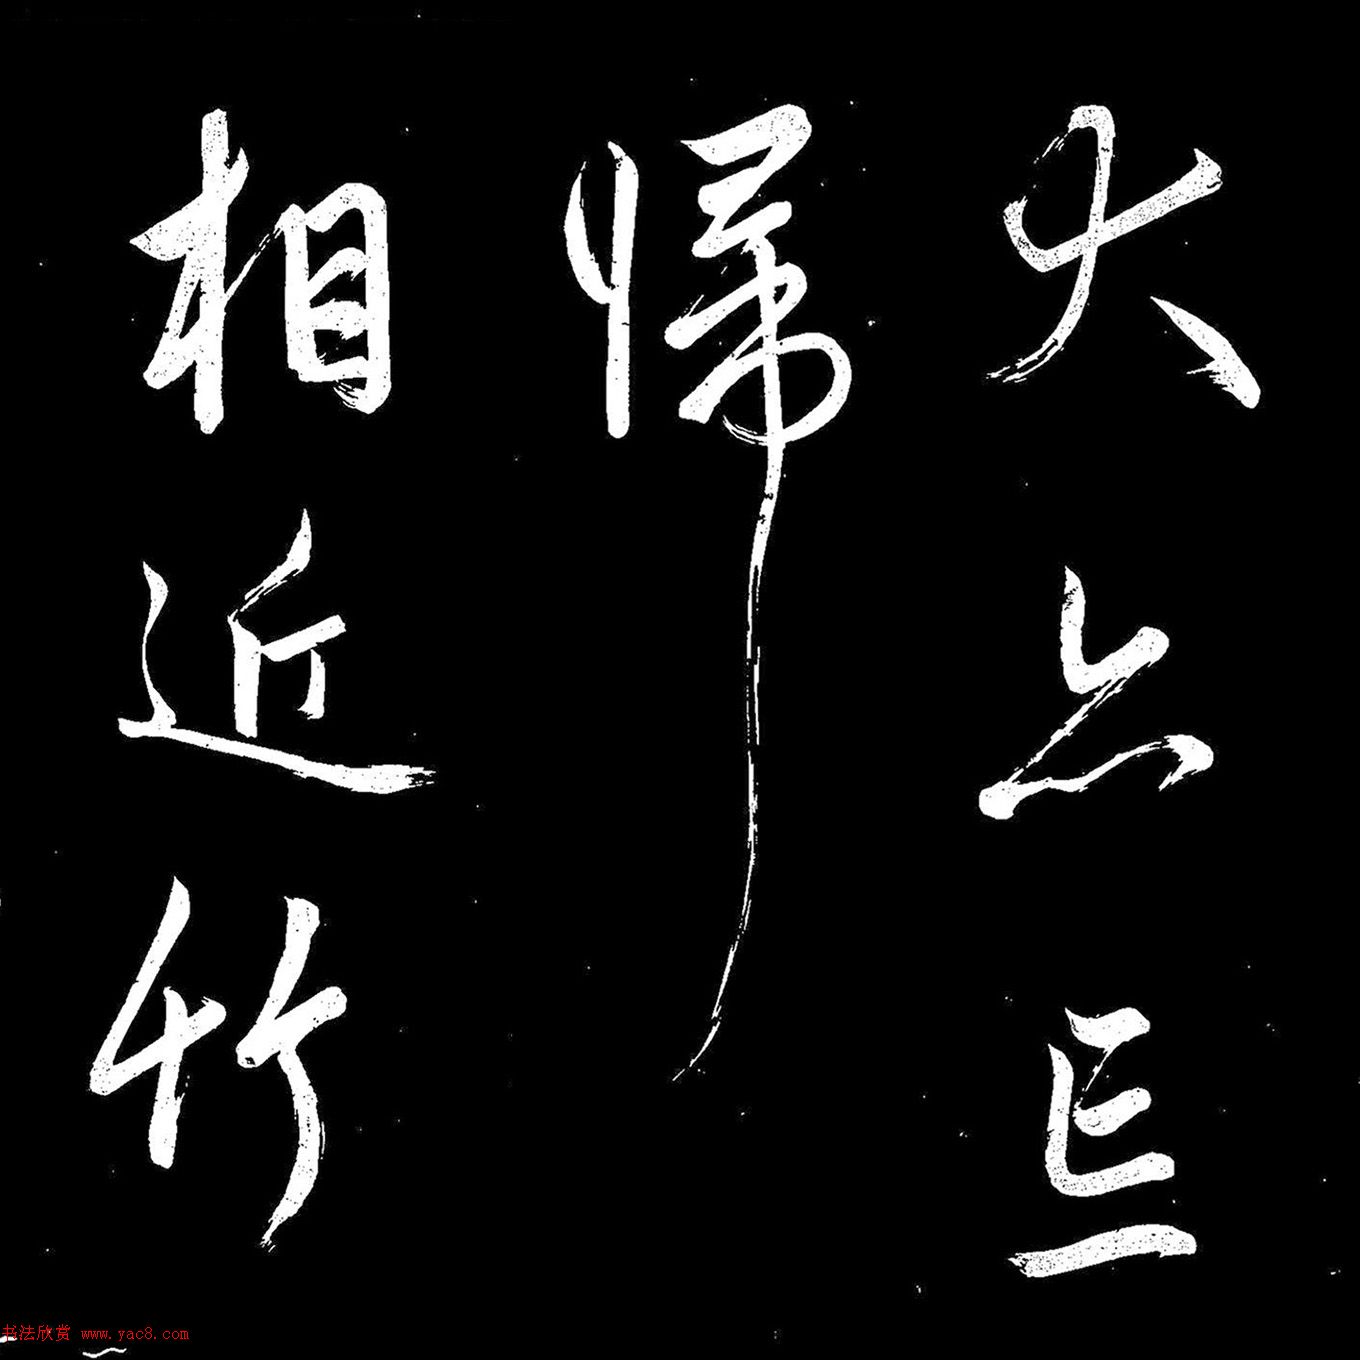 犬亦忘
歸
相近竹
书法欣赏 www.yac8.com